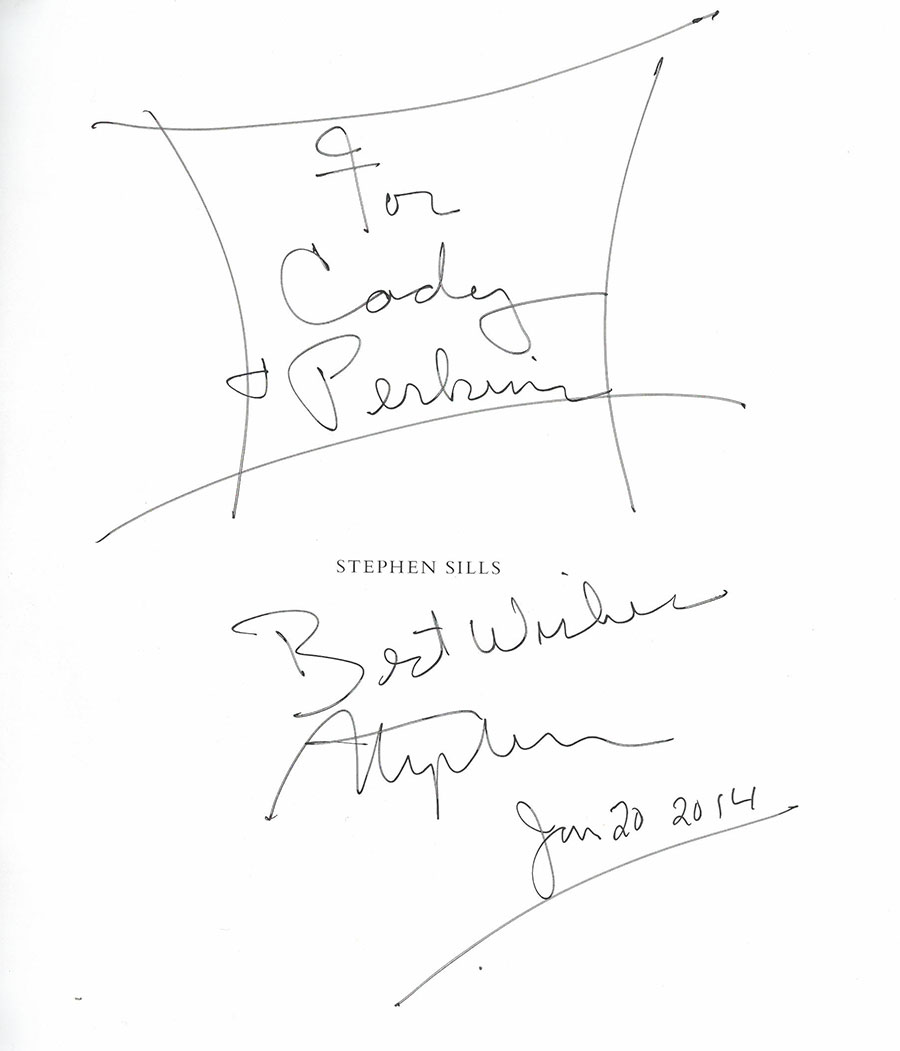 For
Cady
& Perkins
STEPHEN SILLS
Best Wishes
Stephen
Jan 20 2014